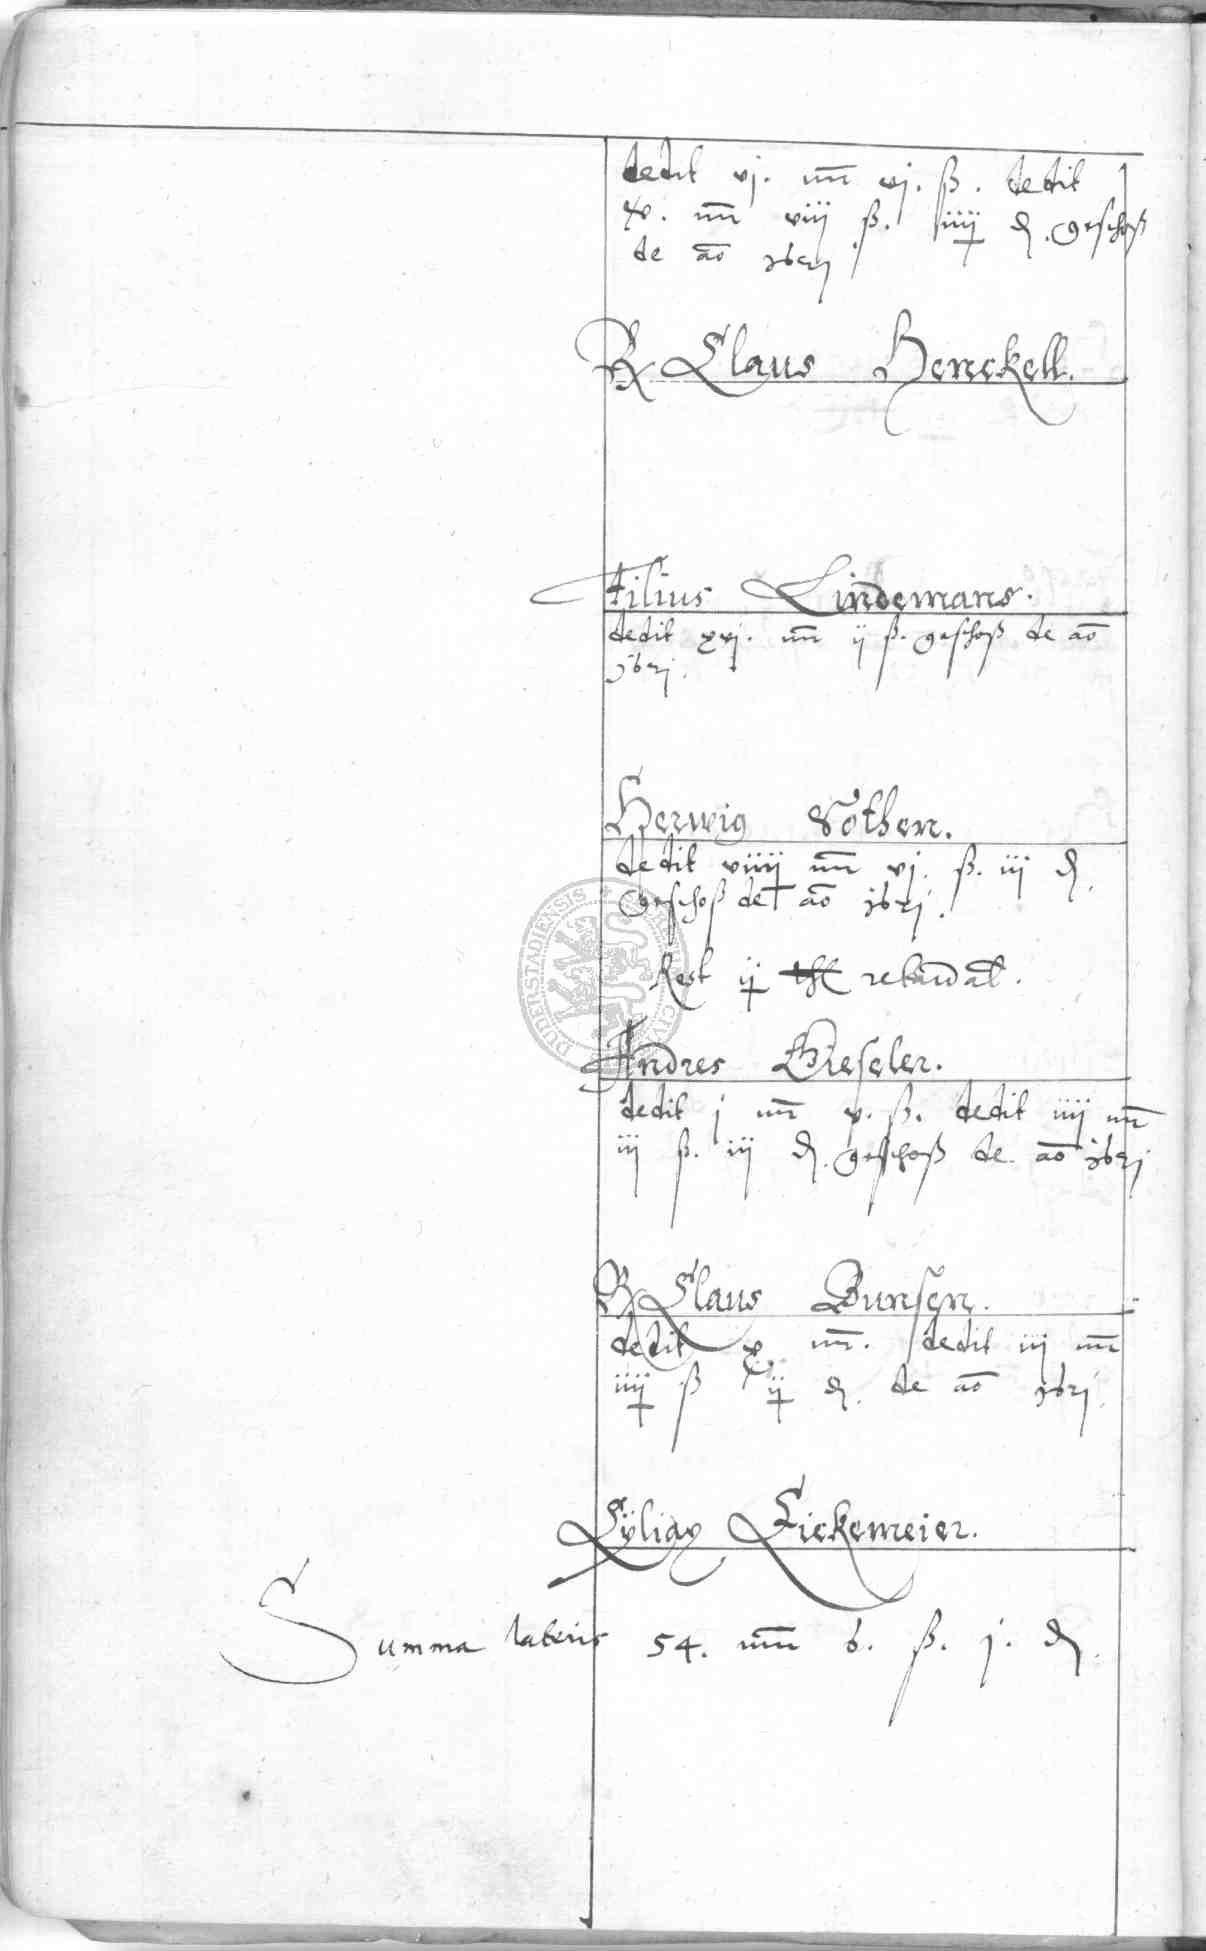 dedit vj. mr vj. ß. dedit
xv. mr viij ß. iiij d. geschoß
de ao 1621
Claus Henckell.
Filius Lindemans.
dedit xvj. mr ij ß. geschoß de ao
1621.
Herwig Nöthen.
dedit viiij mr vj. ß. iij d.
geschoß de ao 1621.
Rest ij thl retardat.
Andres Gieseler.
dedit j mr v. ß. dedit iiij mr
iij ß. iij d. geschoß de ao 1621
Claus Bunsen.
dedit x mr. dedit iij mr
iiij ß ij d. de ao 1621.
Ziliax Eickemeier.
Summa lateris 54. mr 6. ß. j. d.
DUDERSTADIENSIS